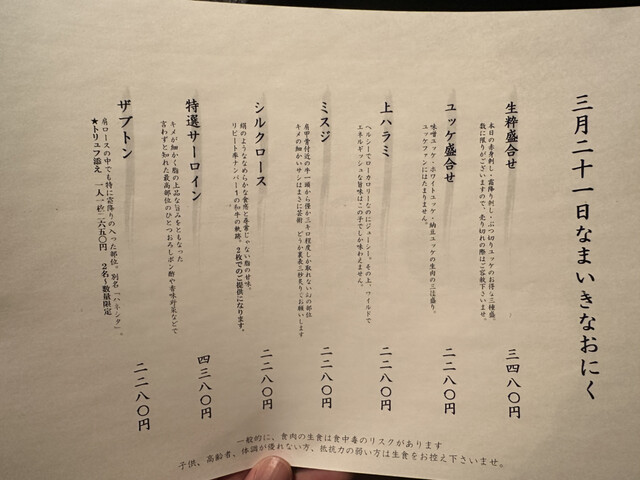 三月二十一日なまいきなおにく
生粋盛合せ
本日の赤身刺し・霜降り刺し・ぶつ切りユッケのお得な三種盛。
数に限りがございますので、売り切れの際はご容赦下さいませ。
三四八〇円
ユッケ盛合せ
味噌ユッケ・ホワイトユッケ・納豆ユッケの生肉の三種盛り。
ユッケファンにはたまりません。
二二八〇円
上ハラミ
ヘルシーでローカロリーなのにジューシー。その上、ワイルドで
エネルギッシュな旨味はこの子でしか味わえません。
二二八〇円
ミスジ
肩甲骨付近の牛一頭から僅か三キロ程度しか取れない幻の部位
キメの細かいサシはまさに芸術 どうか裏表三秒炙りでお願いします
二二八〇円
シルクロース
絹のようななめらかな食感と尋常じゃない脂の甘味。
リピート率ナンバー1の和牛の軌跡。2枚でのご提供になります。
二二八〇円
特選サーロイン
キメが細かく脂の上品な旨みをともなった
言わずと知れた最高部位のひとつおろしポン酢や香味野菜などで
四三八〇円
ザブトン
肩ロースの中でも特に霜降りの入った部位。別名「ハネシタ」。
★トリュフ添え 一人一枚二六五〇円 2名~数量限定
二二八〇円
一般的に、食肉の生食は食中毒のリスクがあります
子供、高齢者、体調が優れない方、抵抗力の弱い方は生食をお控え下さいませ。